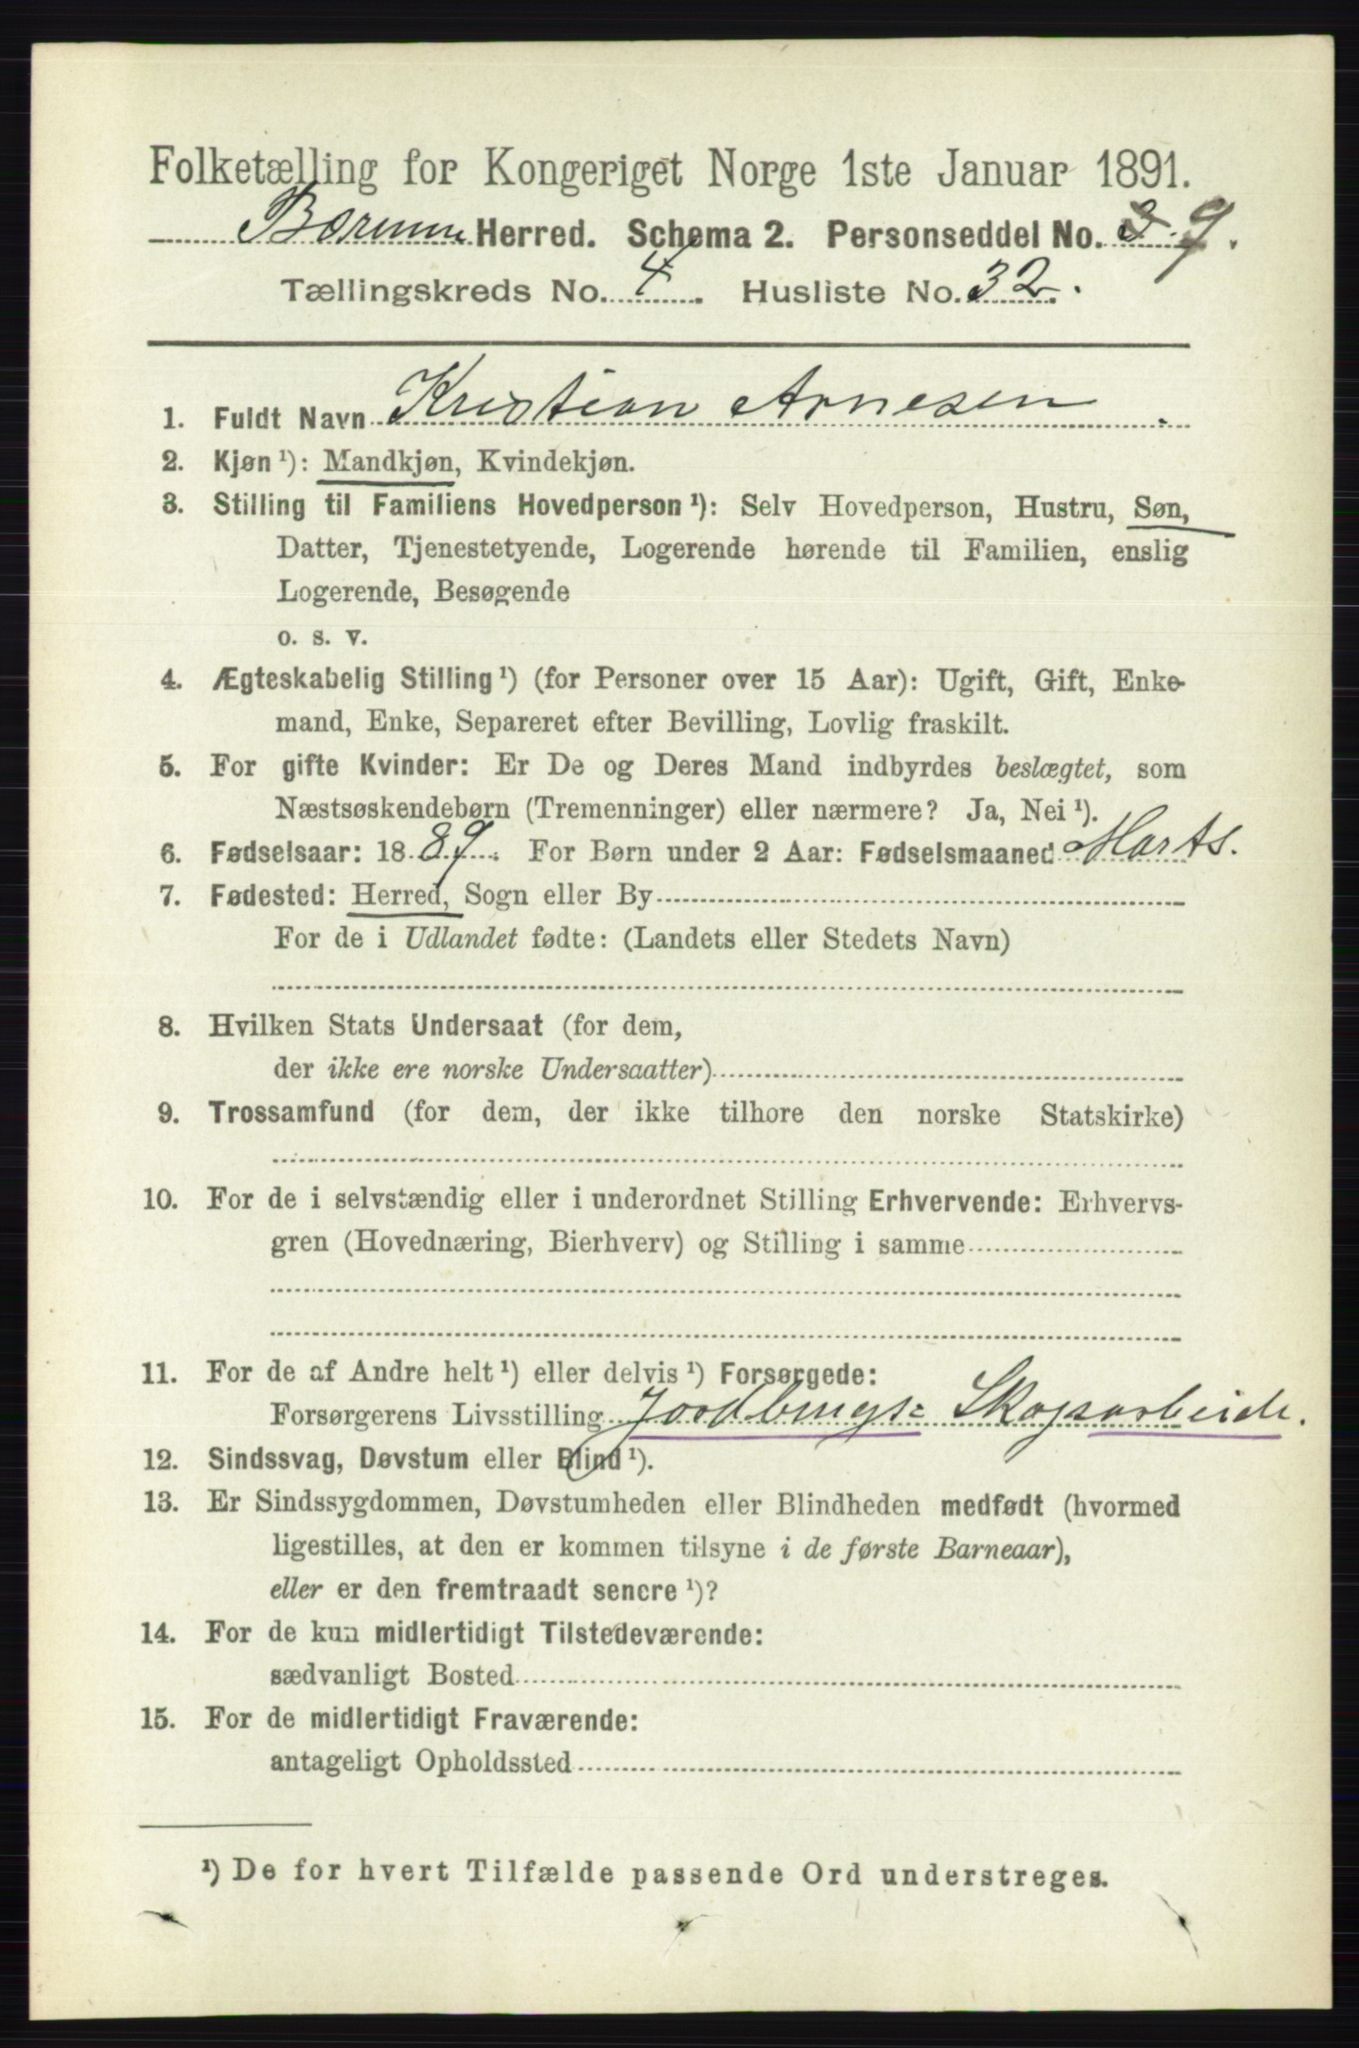 Folketælling for Kongeriget Norge 1ste Januar 1891.
Bærum Herred. Schema 2. Personseddel No. 9.
Tællingskreds No. 4. Husliste No. 32.
1. Fuldt Navn Kristian Arnesen.
2. Kjøn ¹): Mandkjøn, Kvindekjøn.
3. Stilling til Familiens Hovedperson ¹): Selv Hovedperson, Hustru, Søn,
Datter, Tjenestetyende, Logerende hørende til Familien, enslig
Logerende, Besøgende
o. s. v.
4. Ægteskabelig Stilling ¹) (for Personer over 15 Aar): Ugift, Gift, Enke-
mand, Enke, Separeret efter Bevilling, Lovlig fraskilt.
5. For gifte Kvinder: Er De og Deres Mand indbyrdes beslægtet, som
Næstsøskendebørn (Tremenninger) eller nærmere? Ja, Nei ¹).
6. Fødselsaar: 1889. For Børn under 2 Aar: Fødselsmaaned Marts.
7. Fødested: Herred, Sogn eller By
For de i Udlandet fødte: (Landets eller Stedets Navn)
8. Hvilken Stats Undersaat (for dem,
der ikke ere norske Undersaatter)
9. Trossamfund (for dem, der ikke tilhøre den norske Statskirke)
10. For de i selvstændig eller i underordnet Stilling Erhvervende: Erhvervs-
gren (Hovednæring, Bierhverv) og Stilling i samme
11. For de af Andre helt ¹) eller delvis ¹) Forsørgede:
Forsørgerens Livsstilling Jordbrugs= Skogsarbeide.
12. Sindssvag, Døvstum eller Blind ¹).
13. Er Sindssygdommen, Døvstumheden eller Blindheden medfødt (hvormed
ligestilles, at den er kommen tilsyne i de første Barneaar),
eller er den fremtraadt senere ¹)?
14. For de kun midlertidigt Tilstedeværende:
sædvanligt Bosted
15. For de midlertidigt Fraværende:
antageligt Opholdssted
¹) De for hvert Tilfælde passende Ord understreges.